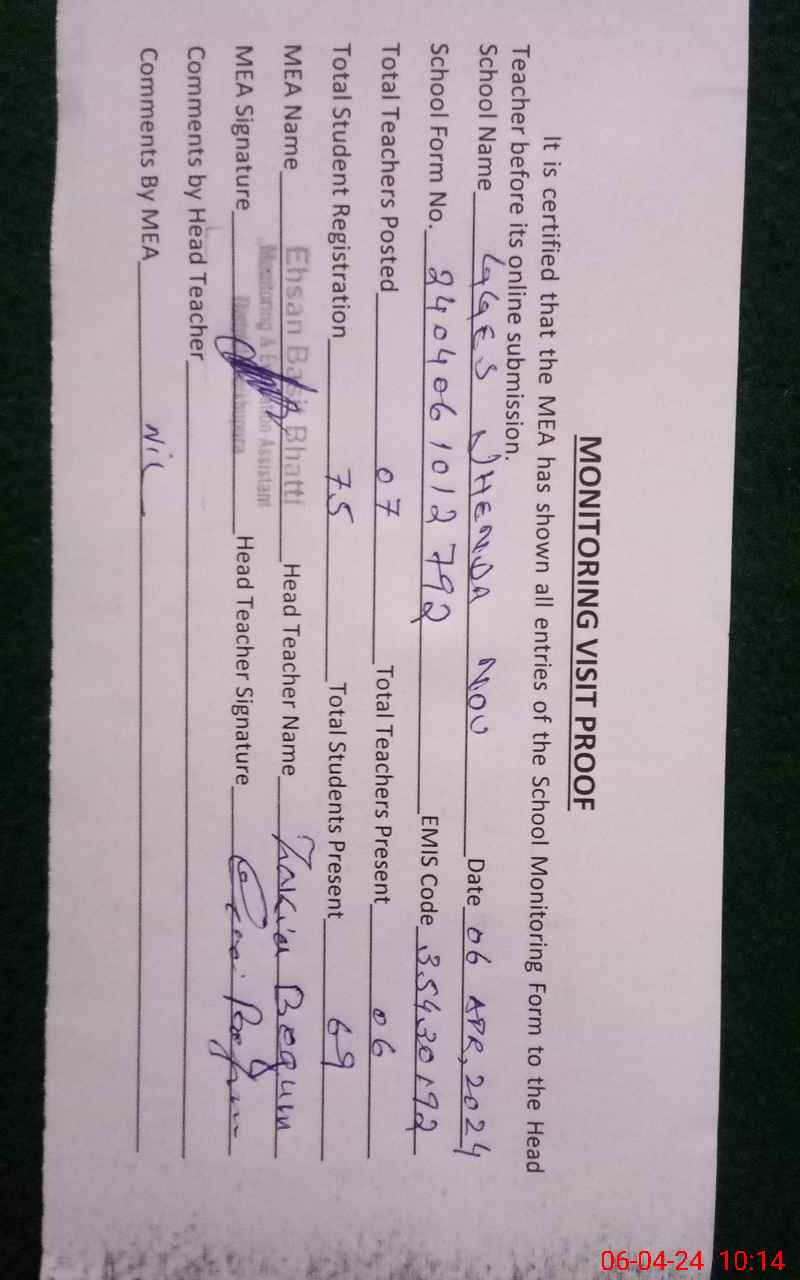 MONITORING VISIT PROOF
It is certified that the MEA has shown all entries of the School Monitoring Form to the Head
Teacher before its online submission.
School Name GGES NHENDA NOU Date 06 APR, 2024
School Form No. 240406 1012 792 EMIS Code 35430192
Total Teachers Posted 07 Total Teachers Present 06
Total Student Registration 75 Total Students Present 69
MEA Name Ehsan Basit Bhatti Head Teacher Name Zakia Begum
Monitoring & Evaluation Assistant
MEA Signature Head Teacher Signature
Comments by Head Teacher
Comments By MEA Nil
06-04-24 10:14